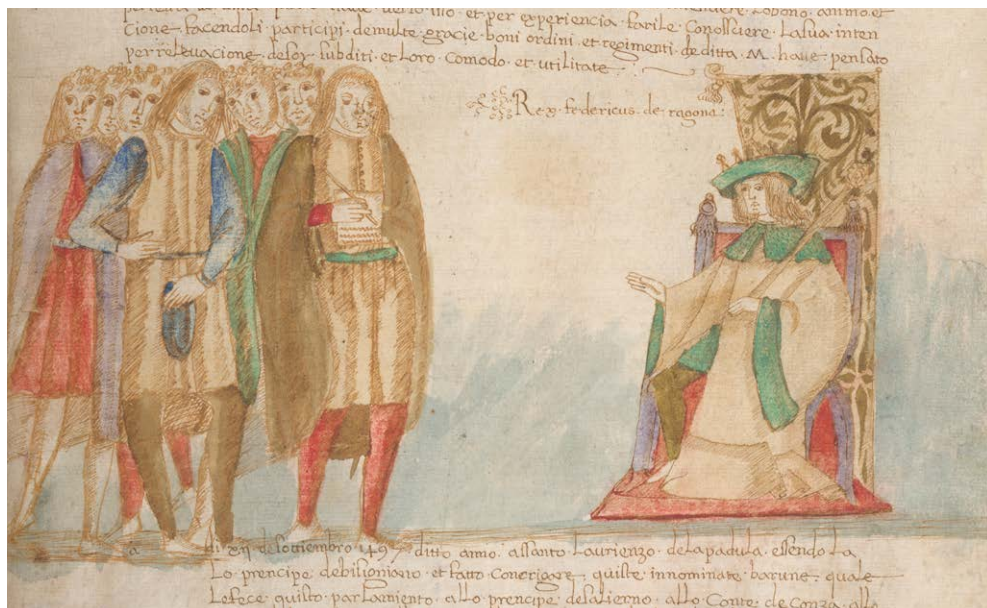 et per experiencia farile Conossciere Lasua inten
Cione · facendoli participi · de multe · gracie · boni ordini · et regimenti · de ditta · M · haue · pensato
per releuacione · desoy · subditi · et Loro · Comodo · et utilitate
Rex · federicus · de · ragona ·
di xij de settiembro · 149 ditto anno · assanto · Laurienzo · delapadula · essendo La
Lo · prencipe debisignano · et fatto Concrigare · quiste innominate · barune · quale
Lefece quisto · parlamiento · allo prencipe desalierno · allo · Conte · de Conza · allo